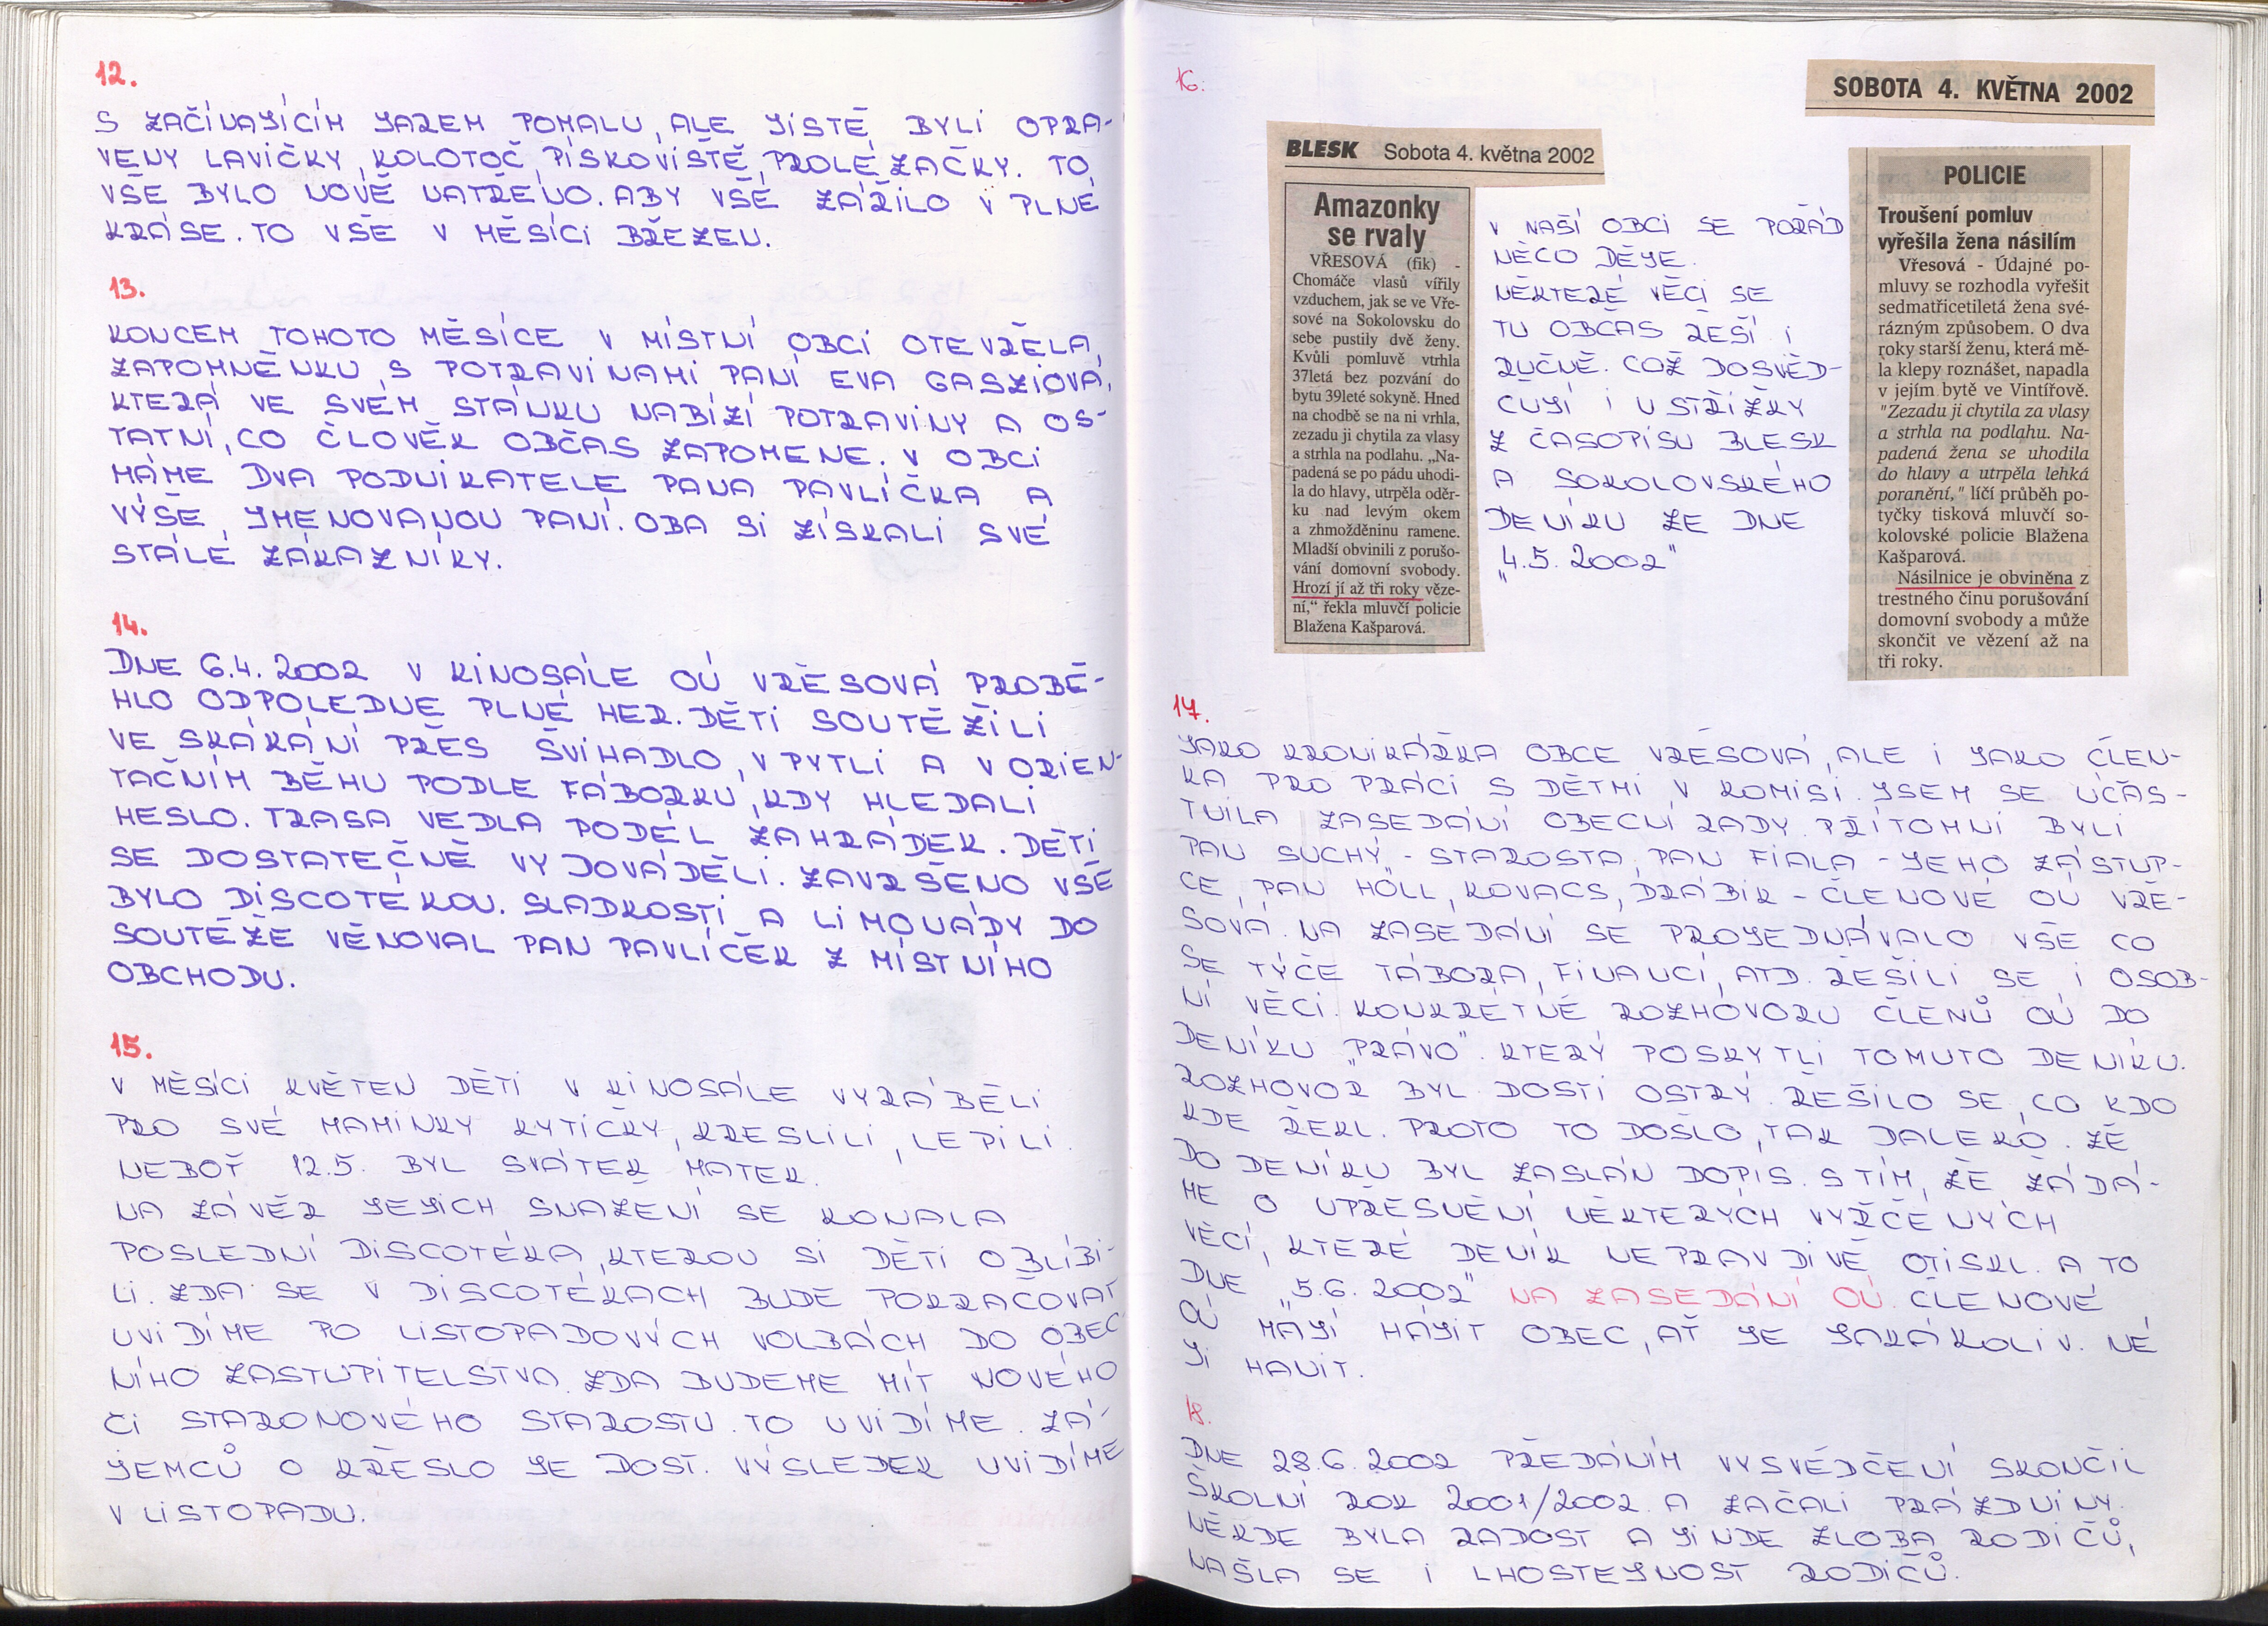 12.
S ZAČÍNAJÍCÍM JAREM POMALU, ALE JISTĚ BYLI OPRA-
VENY LAVIČKY, KOLOTOČ, PÍSKOVIŠTĚ, PROLÉZAČKY. TO
VŠE BYLO NOVĚ NATŘENO. ABY VŠE ZÁŘILO V PLNÉ
KRÁSE. TO VŠE V MĚSÍCI BŘEZEN.
13.
KONCEM TOHOTO MĚSÍCE V MÍSTNÍ OBCI OTEVŘELA
ZAPOMNĚNKU S POTRAVINAMI PANÍ EVA GASZIOVÁ,
KTERÁ VE SVÉM STÁNKU NABÍZÍ POTRAVINY A OS-
TATNÍ, CO ČLOVĚK OBČAS ZAPOMENE. V OBCI
MÁME DVA PODNIKATELE PANA PAVLÍČKA A
VÝŠE JMENOVANOU PANÍ. OBA SI ZÍSKALI SVÉ
STÁLÉ ZÁKAZNÍKY.
14.
DNE 6.4. 2002 V KINOSÁLE OÚ VŘESOVÁ PROBĚ-
HLO ODPOLEDNE PLNÉ HER. DĚTI SOUTĚŽILI
VE SKÁKÁNÍ PŘES ŠVIHADLO, V PYTLI A V ORIEN-
TAČNÍM BĚHU PODLE FÁBORKU, KDY HLEDALI
HESLO. TRASA VEDLA PODÉL ZAHRÁDEK. DĚTI
SE DOSTATEČNĚ VYDOVÁDĚLI. ZAVRŠENO VŠE
BYLO DISCOTÉKOU. SLADKOSTI A LIMONÁDY DO
SOUTĚŽE VĚNOVAL PAN PAVLÍČEK Z MÍSTNÍHO
OBCHODU.
15.
V MĚSÍCI KVĚTEN DĚTI V KINOSÁLE VYRÁBĚLI
PRO SVÉ MAMINKY KYTIČKY, KRESLILI, LEPILI.
NEBOŤ 12.5. BYL SVÁTEK MATEK.
NA ZÁVĚR JEJICH SNAŽENÍ SE KONALA
POSLEDNÍ DISCOTÉKA, KTEROU SI DĚTI OBLÍBI-
LI. ZDA SE V DISCOTÉKÁCH BUDE POKRAČOVAT
UVIDÍME PO LISTOPADOVÝCH VOLBÁCH DO OBEC
NÍHO ZASTUPITELSTVA. ZDA BUDEME MÍT NOVÉHO
ČI STARONOVÉHO STAROSTU. TO UVIDÍME. ZÁ-
JEMCŮ O KŘESLO JE DOST. VÝSLEDEK UVIDÍME
V LISTOPADU.
16.
SOBOTA 4. KVĚTNA 2002
BLESK Sobota 4. května 2002
Amazonky
se rvaly
VŘESOVÁ (fik) -
Chomáče vlasů vířily
vzduchem, jak se ve Vře-
sové na Sokolovsku do
sebe pustily dvě ženy.
Kvůli pomluvě vtrhla
37letá bez pozvání do
bytu 39leté sokyně. Hned
na chodbě se na ni vrhla,
zezadu ji chytila za vlasy
a strhla na podlahu. „Na-
padená se po pádu uhodi-
la do hlavy, utrpěla oděr-
ku nad levým okem
a zhmožděninu ramene.
Mladší obvinili z porušo-
vání domovní svobody.
Hrozí jí až tři roky věze-
ní,“ řekla mluvčí policie
Blažena Kašparová.
V NAŠÍ OBCI SE POŘÁD
NĚCO DĚJE.
NĚKTERÉ VĚCI SE
TU OBČAS ŘEŠÍ I
RUČNĚ. COŽ DOSVĚD-
ČUJÍ I USTŘIŽKY
Z ČASOPISU BLESK
A SOKOLOVSKÉHO
DENÍKU ZE DNE
„4.5. 2002"
POLICIE
Troušení pomluv
vyřešila žena násilím
Vřesová - Údajné po-
mluvy se rozhodla vyřešit
sedmatřicetiletá žena své-
rázným způsobem. O dva
roky starší ženu, která mě-
la klepy roznášet, napadla
v jejím bytě ve Vintířově.
"Zezadu ji chytila za vlasy
a strhla na podlahu. Na-
padená žena se uhodila
do hlavy a utrpěla lehká
poranění," líčí průběh po-
tyčky tisková mluvčí so-
kolovské policie Blažena
Kašparová.
Násilnice je obviněna z
trestného činu porušování
domovní svobody a může
skončit ve vězení až na
tři roky.
17.
JAKO KRONIKÁŘKA OBCE VŘESOVÁ, ALE I JAKO ČLEN-
KA PRO PRÁCI S DĚTMI V KOMISI. JSEM SE ÚČAS-
TNILA ZASEDÁNÍ OBECNÍ RADY. PŘÍTOMNI BYLI
PAN SUCHÝ - STAROSTA, PAN FIALA - JEHO ZÁSTUP-
CE, PAN HÖLL, KOVACS, DRÁBIK - ČLENOVÉ OÚ VŘE-
SOVÁ. NA ZASEDÁNÍ SE PROJEDNÁVALO VŠE CO
SE TÝČE TÁBORA, FINANCÍ, ATD. ŘEŠILI SE I OSOB-
NÍ VĚCI. KONKRÉTNĚ ROZHOVORU ČLENŮ OÚ DO
DENÍKU „PRÁVO". KTERÝ POSKYTLI TOMUTO DENÍKU.
ROZHOVOR BYL DOSTI OSTRÝ. ŘEŠILO SE, CO KDO
KDE ŘEKL. PROTO TO DOŠLO, TAK DALEKO. ŽE
DO DENÍKU BYL ZASLÁN DOPIS. S TÍM, ŽE ŽÁDÁ-
ME O UPŘESNĚNÍ NĚKTERÝCH VYŘČENÝCH
VĚCÍ, KTERÉ DENÍK NEPRAVDIVĚ OTISKL. A TO
DNE „5.6. 2002" NA ZASEDÁNÍ OÚ. ČLENOVÉ
OÚ MAJÍ HÁJIT OBEC, AŤ JE JAKÁKOLIV. NE
JI HANIT.
18.
DNE 28.6. 2002 PŘEDÁNÍM VYSVĚDČENÍ SKONČIL
ŠKOLNÍ ROK 2001/2002. A ZAČALI PRÁZDNINY.
NĚKDE BYLA RADOST A JINDE ZLOBA RODIČŮ,
NAŠLA SE I LHOSTEJNOST RODIČŮ.